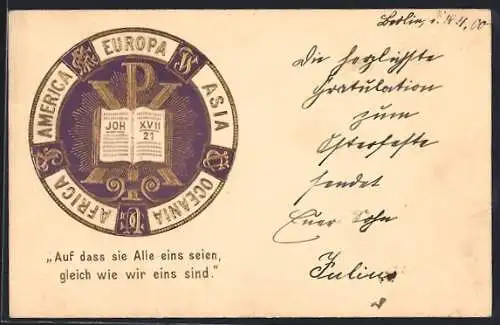 EUROPA
ASIA
OCEANIA
AFRICA
AMERICA
JOH XVII
21
„Auf dass sie Alle eins seien,
gleich wie wir eins sind."
Berlin, 00
Die herzlichste
Gratulation
zum
Osterfeste
sendet
Euer Sohn
Julius